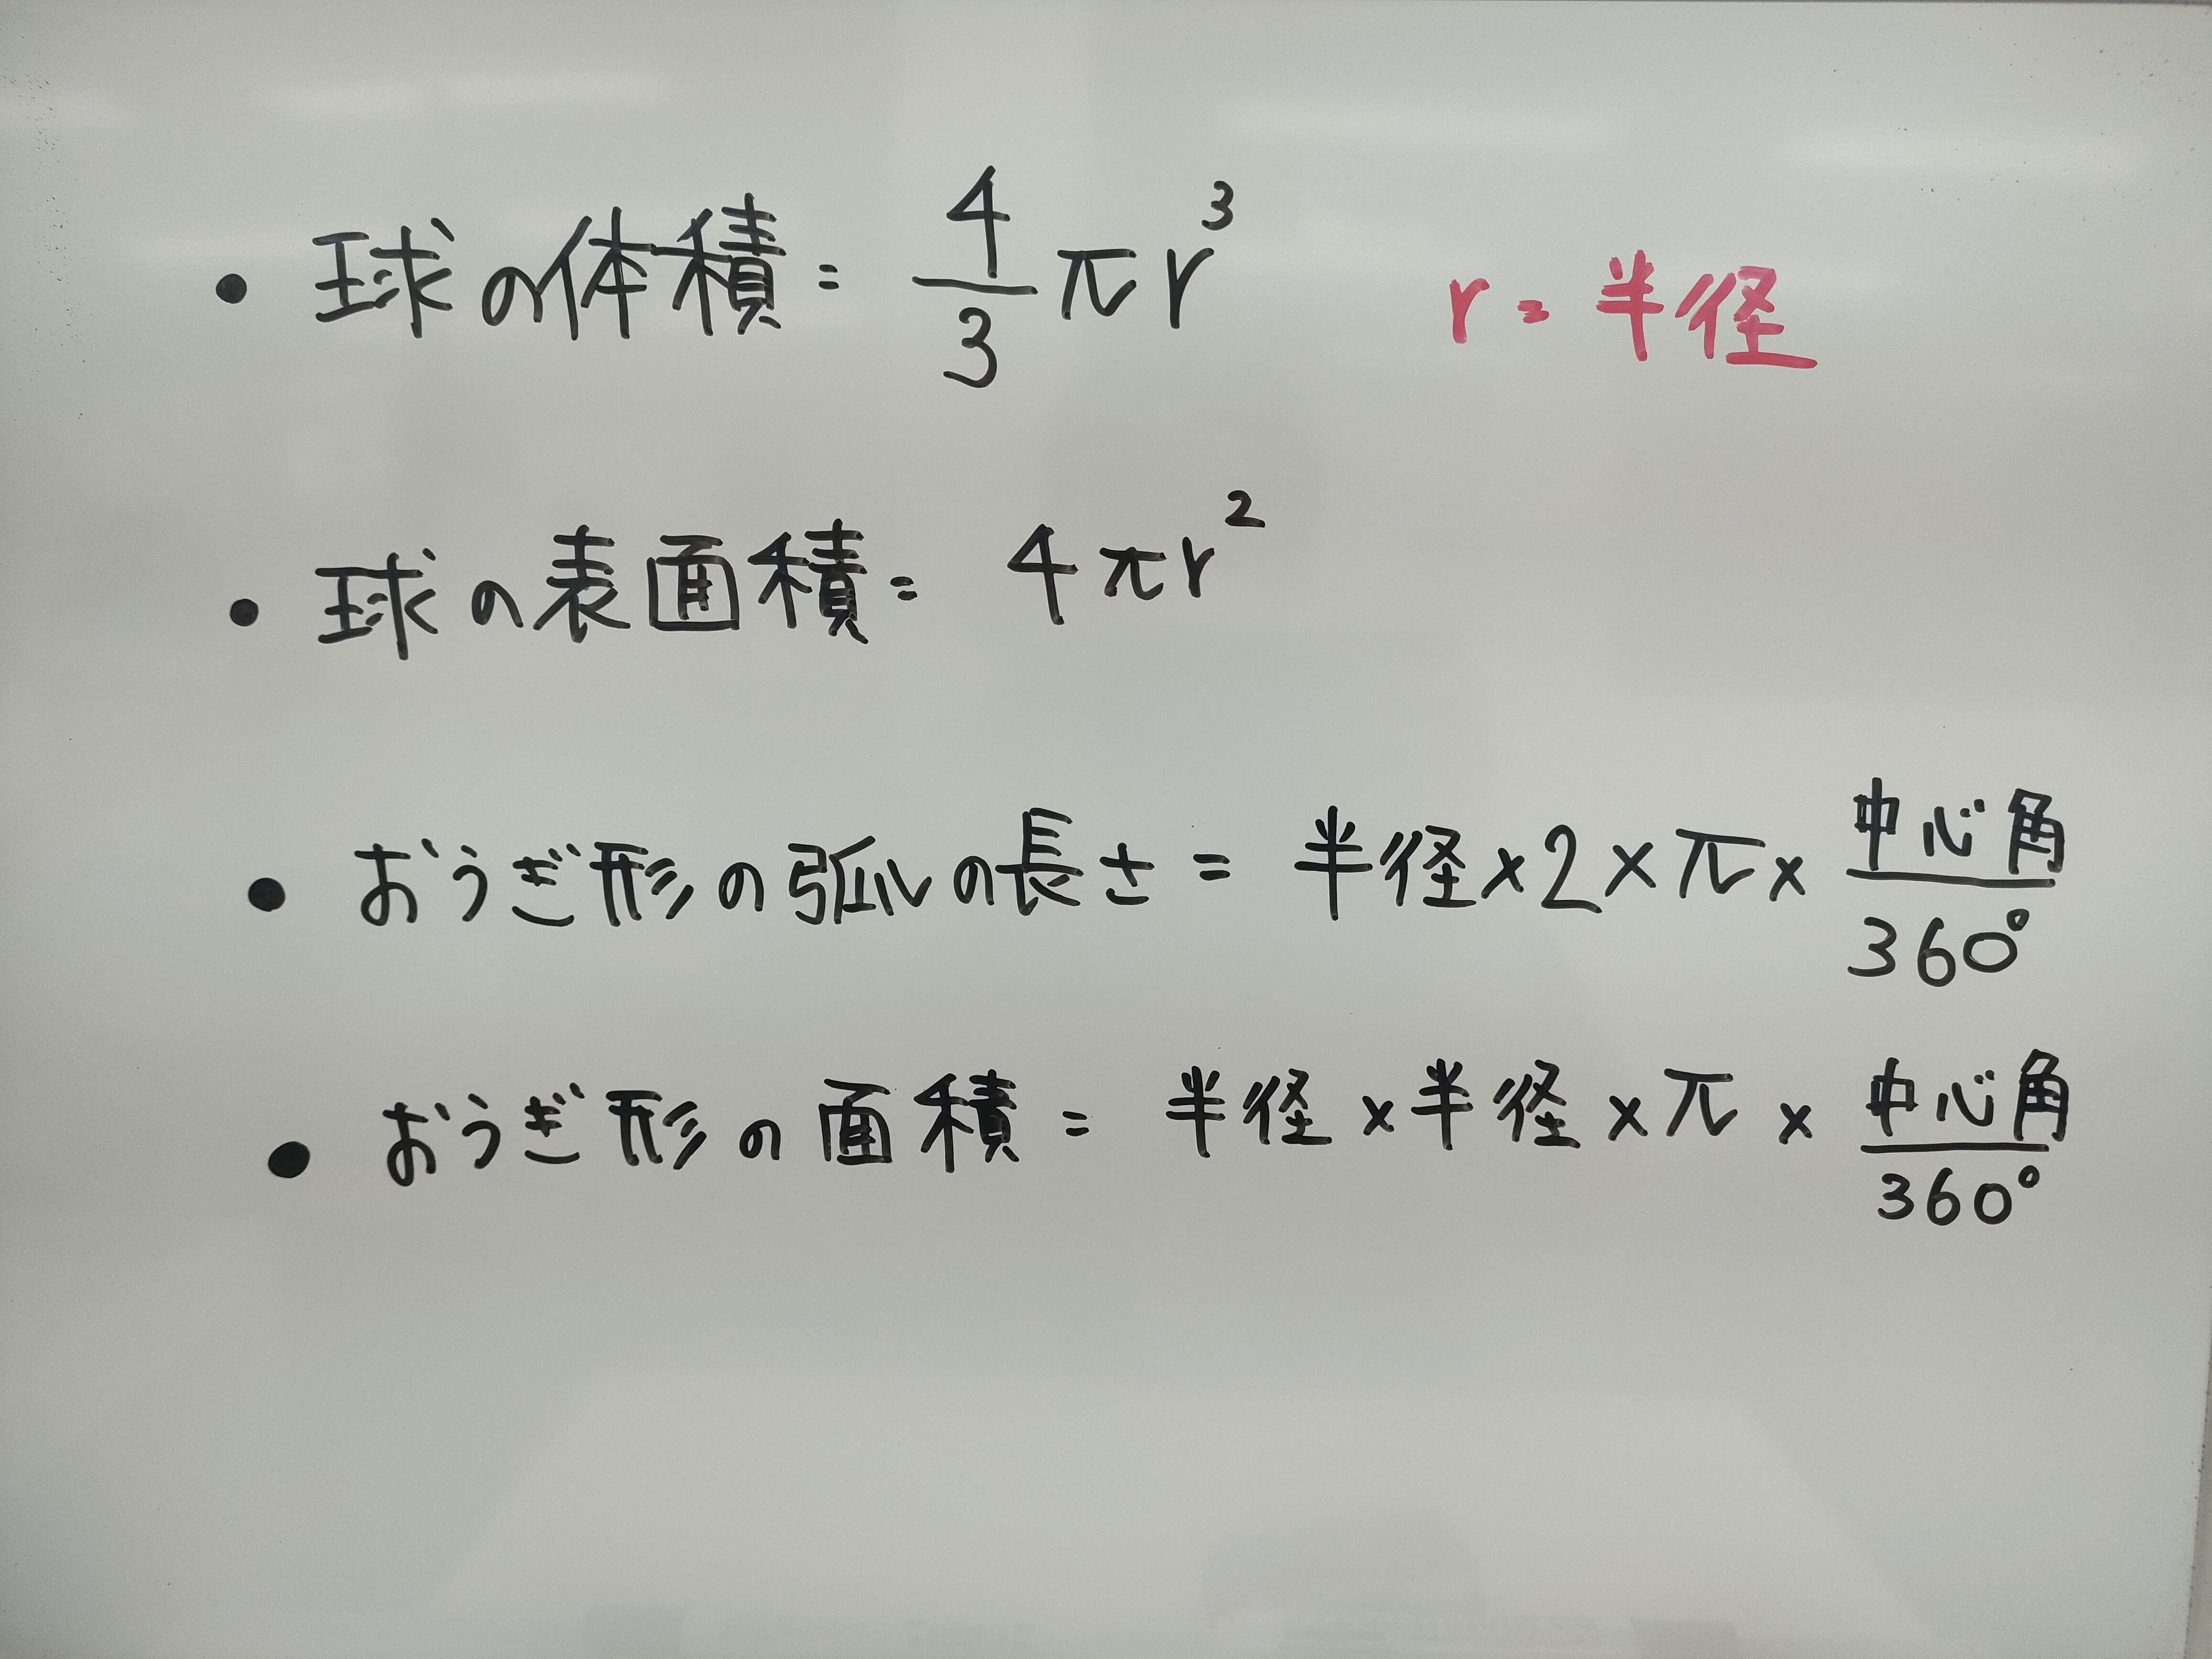 ・球の体積 = 4/3 πr³ r = 半径
・球の表面積 = 4πr²
・おうぎ形の弧の長さ = 半径×2×π×中心角/360°
・おうぎ形の面積 = 半径×半径×π×中心角/360°